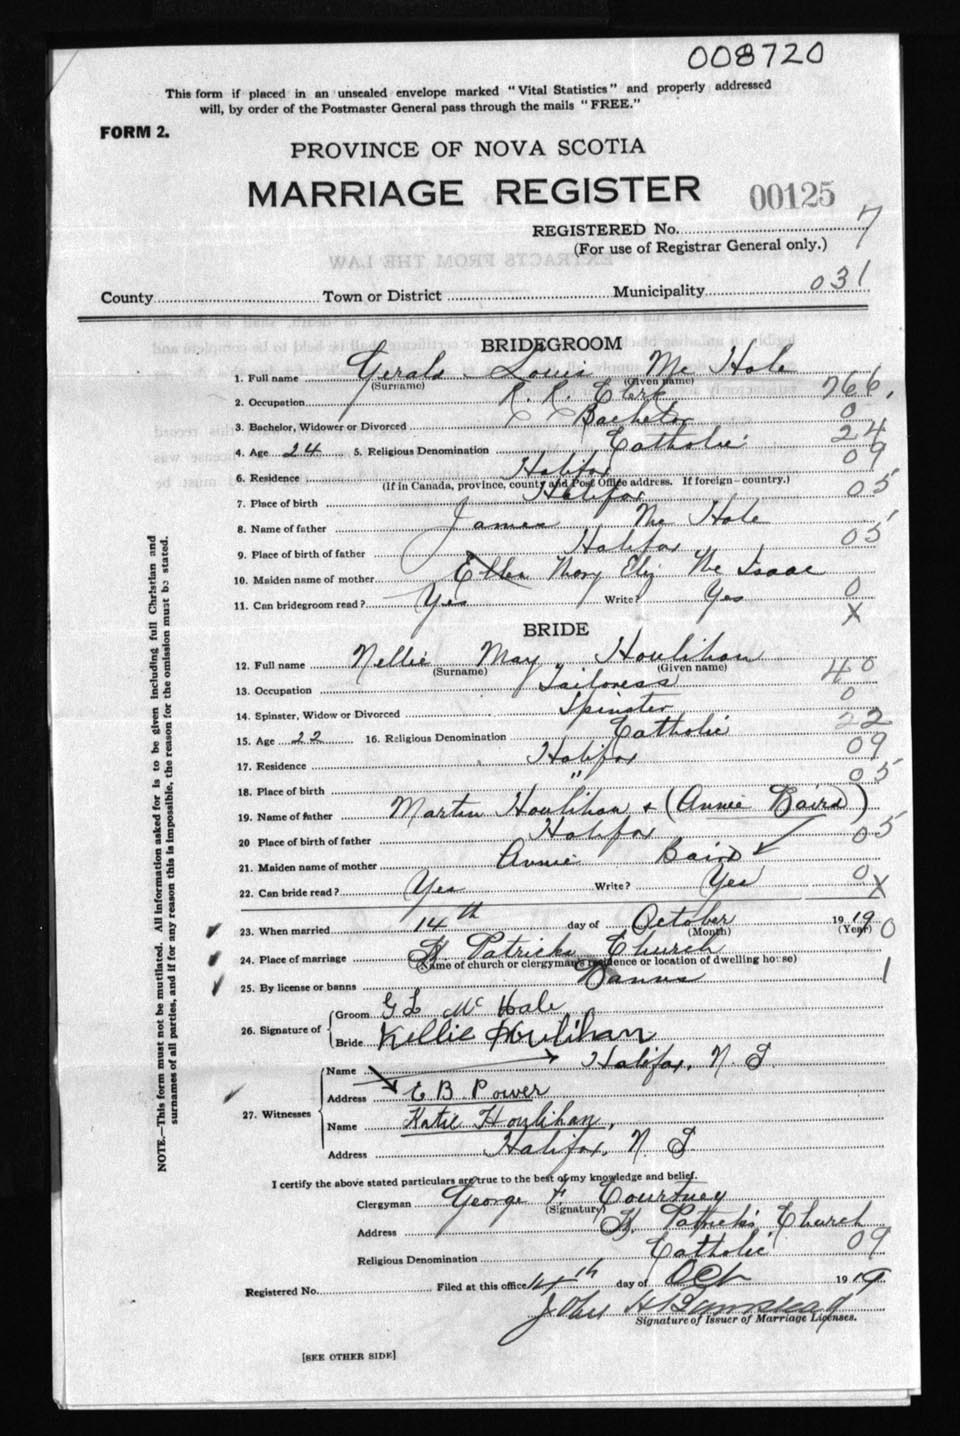 008720
This form if placed in an unsealed envelope marked "Vital Statistics" and properly addressed
will, by order of the Postmaster General pass through the mails "FREE."
FORM 2.
PROVINCE OF NOVA SCOTIA
MARRIAGE REGISTER 00125
REGISTERED No. 7
(For use of Registrar General only.)
County Town or District Municipality 031
BRIDEGROOM
1. Full name Gerald Louis Mc Hale
(Surname) (Given name)
2. Occupation R. R. Clerk 766
3. Bachelor, Widower or Divorced Bachelor 0
4. Age 24 5. Religious Denomination Catholic 24
6. Residence Halifax 09
(If in Canada, province, county and Post Office address. If foreign-country.)
7. Place of birth Halifax 05
8. Name of father James Mc Hale
9. Place of birth of father Halifax 05
10. Maiden name of mother Ellen Mary Eliz Mc Isaac
11. Can bridegroom read? Yes Write? Yes 0
X
BRIDE
12. Full name Nellie May Houlihan
(Surname) (Given name)
13. Occupation Tailoress 40
14. Spinster, Widow or Divorced Spinster 0
15. Age 22 16. Religious Denomination Catholic 22
17. Residence Halifax 09
18. Place of birth " 05
19. Name of father Martin Houlihan & (Annie Baird)
20 Place of birth of father Halifax 05
21. Maiden name of mother Annie Baird
22. Can bride read? Yes Write? Yes 0 X
23. When married 14th day of October 1919 0
(Month) (Year)
24. Place of marriage St Patricks Church
(Name of church or clergyman's residence or location of dwelling house)
25. By license or banns Banns 1
26. Signature of Groom G L McHale
Bride Nellie Houlihan
27. Witnesses
Name Halifax, N. S.
Address E B. Power
Name Katie Houlihan,
Address Halifax, N. S.
I certify the above stated particulars are true to the best of my knowledge and belief.
Clergyman George F. Courtney
(Signature)
Address St. Patrick's Church
Religious Denomination Catholic 09
Registered No. Filed at this office 14th day of Oct 1919
John H
Signature of Issuer of Marriage Licenses.
[SEE OTHER SIDE]
NOTE.—This form must not be mutilated. All information asked for is to be given including full Christian and
surnames of all parties, and if for any reason this is impossible, the reason for the omission must be stated.